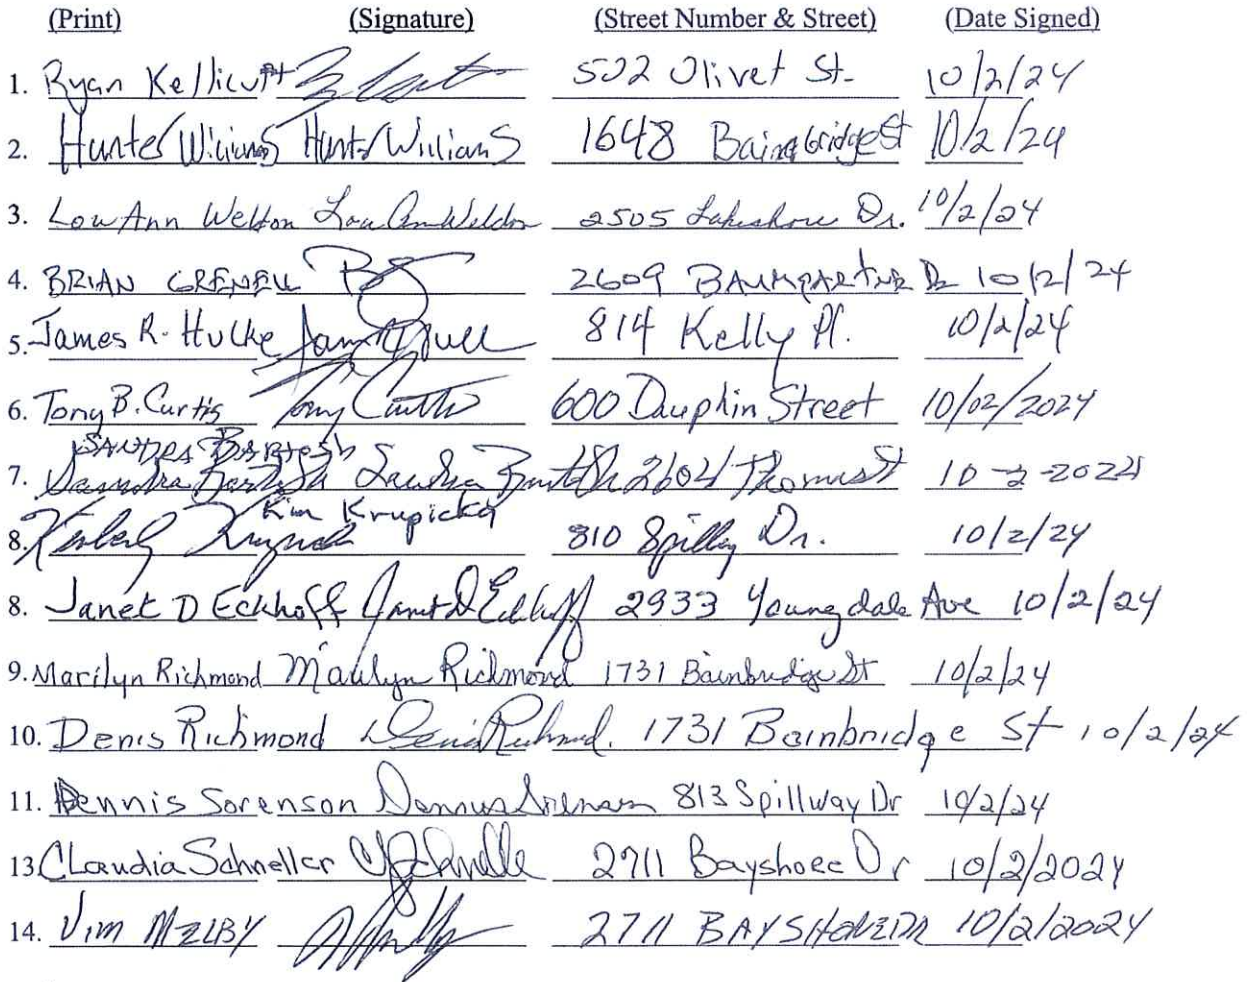 (Print) (Signature) (Street Number & Street) (Date Signed)
1. Ryan Kellicutt 502 Olivet St. 10/2/24
2. Hunter Williams Hunter Williams 1648 Bainbridge St 10/2/24
3. Lou Ann Weldon Lou Ann Weldon 2505 Lakeshore Dr. 10/2/24
4. BRIAN GRENELL 2609 BAUMGARTNER Dr 10/2/24
5. James R. Hulke 814 Kelly Pl. 10/2/24
6. Tony B. Curtis Tony Curtis 600 Dauphin Street 10/02/2024
SANDRA BARTOSH
7. Sandra Bartosh Sandra Bartosh 2604 Thomas St 10-2-2024
Kim Krupicka
8. Kimberly Krupicka 810 Spillway Dr. 10/2/24
8. Janet D Eckhoff Janet D Eckhoff 2933 Youngdale Ave 10/2/24
9. Marilyn Richmond Marilyn Richmond 1731 Bainbridge St 10/2/24
10. Denis Richmond Denis Richmond 1731 Bainbridge St 10/2/24
11. Dennis Sorenson Dennis Sorenson 813 Spillway Dr 10/2/24
13. Claudia Schneller 2711 Bayshore Dr 10/2/2024
14. Jim MELBY 2711 BAYSHORE DR 10/2/2024